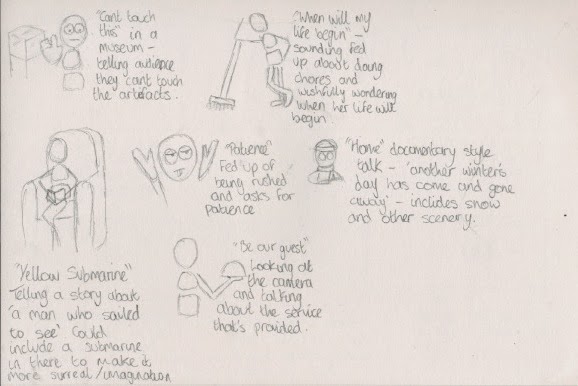 "Cant touch
this" in a
museum -
telling audience
they cant touch
the artefacts.
"When will my
life begin" -
sounding fed
up about doing
chores and
wishfully wondering
when her life will
begin.
"Patience"
Fed up of
being rushed
and asks for
patience
"Home" documentary style
talk - 'another winter's
day has come and gone
away' - includes snow
and other scenery.
"Yellow Submarine"
Telling a story about
'a man who sailed
to see' Could
include a submarine
in there to make it
more surreal/imagination
"Be our guest"
Looking at
the camera
and talking
about the service
that's provided.